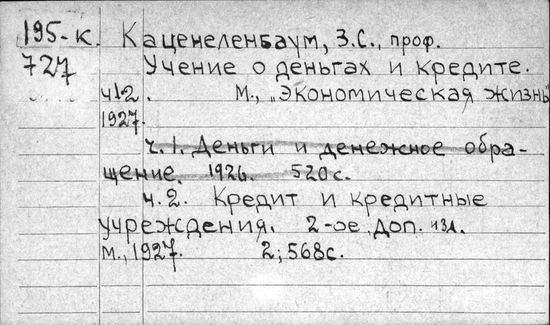 195-к. Каценеленбаум, З.С., проф.
727 Учение о деньгах и кредите.
ч.1.2. М., „Экономическая жизнь
1927.
ч.1. Деньги и денежное обра-
щение. 1926. 520с.
ч.2. Кредит и кредитные
учреждения. 2-ое, доп. изд.
М., 1927. 2; 568с.